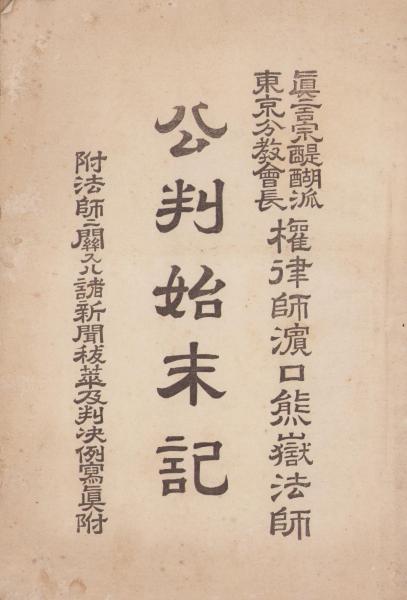 眞言宗醍醐派
東京分教會長
權律師濱口熊嶽法師
公判始末記
附法師ニ關スル諸新聞拔萃及判决例寫眞附